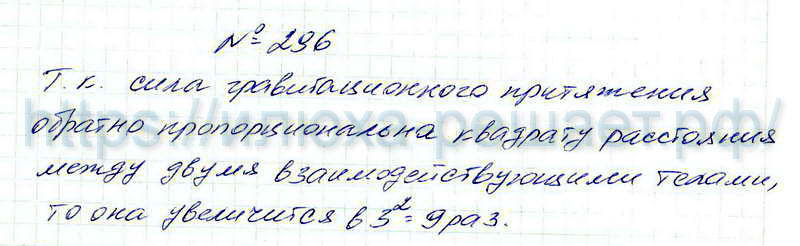 № 296
Т.к. сила гравитационного притяжения
обратно пропорциональна квадрату расстояния
между двумя взаимодействующими телами,
то она увеличится в 3² = 9 раз.